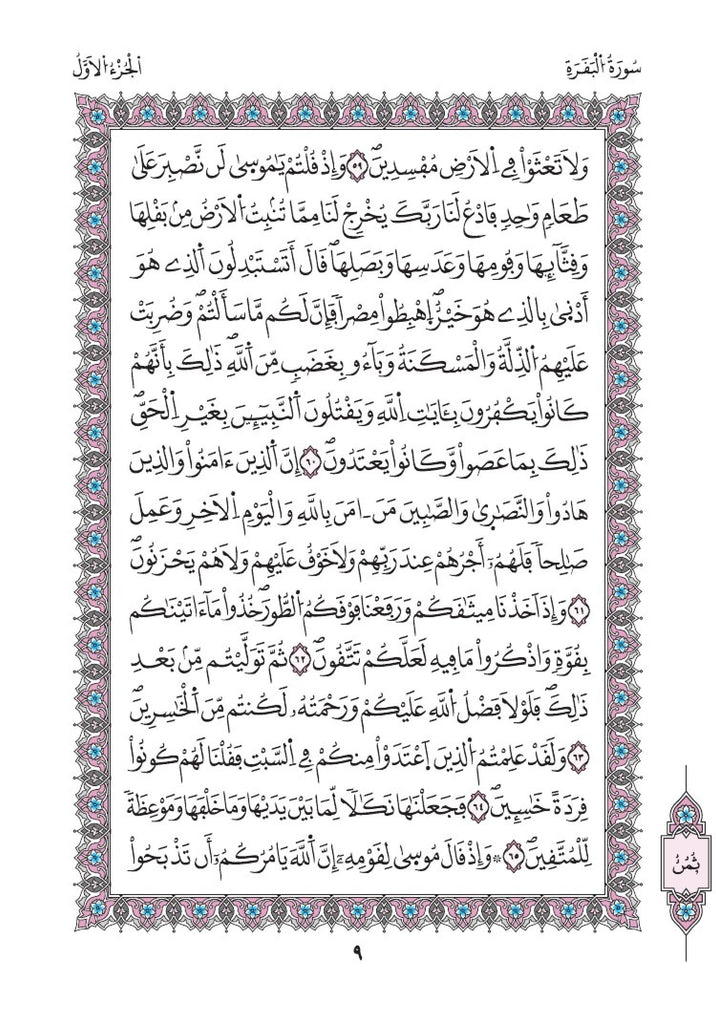 سُورَةُ اَ۬لْبَقَرَةِ
اَ۬لْجُزْءُ اَ۬لَاوَّلُ
وَلَا تَعْثَوْاْ فِے اِ۬لَارْضِ مُفْسِدِينَۖ ٥٩ وَإِذْ قُلْتُمْ يَٰمُوس۪يٰ لَن نَّصْبِرَ عَلَيٰ
طَعَامٖ وَٰحِدٖ فَادْعُ لَنَا رَبَّكَ يُخْرِجْ لَنَا مِمَّا تُنۢبِتُ اُ۬لَارْضُ مِنۢ بَقْلِهَا
وَقِثَّآئِهَا وَفُومِهَا وَعَدَسِهَا وَبَصَلِهَاۖ قَالَ أَتَسْتَبْدِلُونَ اَ۬لذِے هُوَ
أَدْن۪يٰ بِالذِے هُوَ خَيْرٌۖ اِ۪هْبِطُواْ مِصْراٗ فَإِنَّ لَكُم مَّا سَأَلْتُمْۖ وَضُرِبَتْ
عَلَيْهِمُ اُ۬لذِّلَّةُ وَالْمَسْكَنَةُ وَبَآءُو بِغَضَبٖ مِّنَ اَ۬للَّهِۖ ذَٰلِكَ بِأَنَّهُمْ
كَانُواْ يَكْفُرُونَ بِـَٔايَٰتِ اِ۬للَّهِ وَيَقْتُلُونَ اَ۬لنَّبِيٓـِٕينَ بِغَيْرِ اِ۬لْحَقِّۖ
ذَٰلِكَ بِمَا عَصَواْ وَّكَانُواْ يَعْتَدُونَۖ ٦٠ إِنَّ اَ۬لذِينَ ءَامَنُواْ وَالذِينَ
هَادُواْ وَالنَّصَٰر۪يٰ وَالصَّٰبِينَ مَنَ اٰمَنَ بِاللَّهِ وَالْيَوْمِ اِ۬لَاخِرِ وَعَمِلَ
صَٰلِحاٗ فَلَهُمُۥٓ أَجْرُهُمْ عِندَ رَبِّهِمْ وَلَا خَوْفٌ عَلَيْهِمْ وَلَا هُمْ يَحْزَنُونَۖ
٦١ وَإِذَ اَخَذْنَا مِيثَٰقَكُمْ وَرَفَعْنَا فَوْقَكُمُ اُ۬لطُّورَۖ خُذُواْ مَآ ءَاتَيْنَٰكُم
بِقُوَّةٖ وَاذْكُرُواْ مَا فِيهِ لَعَلَّكُمْ تَتَّقُونَۖ ٦٢ ثُمَّ تَوَلَّيْتُم مِّنۢ بَعْدِ
ذَٰلِكَۖ فَلَوْلَا فَضْلُ اُ۬للَّهِ عَلَيْكُمْ وَرَحْمَتُهُۥ لَكُنتُم مِّنَ اَ۬لْخَٰسِرِينَۖ
٦٣ وَلَقَدْ عَلِمْتُمُ اُ۬لذِينَ اَ۪عْتَدَوْاْ مِنكُمْ فِے اِ۬لسَّبْتِ فَقُلْنَا لَهُمْ كُونُواْ
قِرَدَةً خَٰسِـِٕينَۖ ٦٤ فَجَعَلْنَٰهَا نَكَٰلاٗ لِّمَا بَيْنَ يَدَيْهَا وَمَا خَلْفَهَا وَمَوْعِظَةٗ
لِّلْمُتَّقِينَۖ ٦٥ ۞ وَإِذْ قَالَ مُوس۪يٰ لِقَوْمِهِۦٓ إِنَّ اَ۬للَّهَ يَامُرُكُمُۥٓ أَن تَذْبَحُواْ
ثُمُنُ
٩